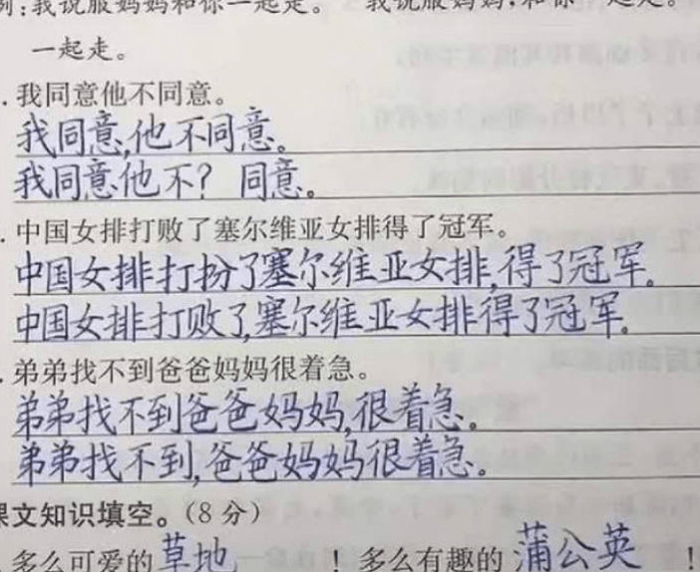 例:我说服妈妈和你一起走。 我说服妈妈,和你一起走。
一起走。
.我同意他不同意。
我同意,他不同意。
我同意他不?同意。
.中国女排打败了塞尔维亚女排得了冠军。
中国女排打扮了塞尔维亚女排,得了冠军。
中国女排打败了,塞尔维亚女排得了冠军。
.弟弟找不到爸爸妈妈很着急。
弟弟找不到爸爸妈妈,很着急。
弟弟找不到,爸爸妈妈很着急。
课文知识填空。(8分)
.多么可爱的草地!多么有趣的蒲公英!